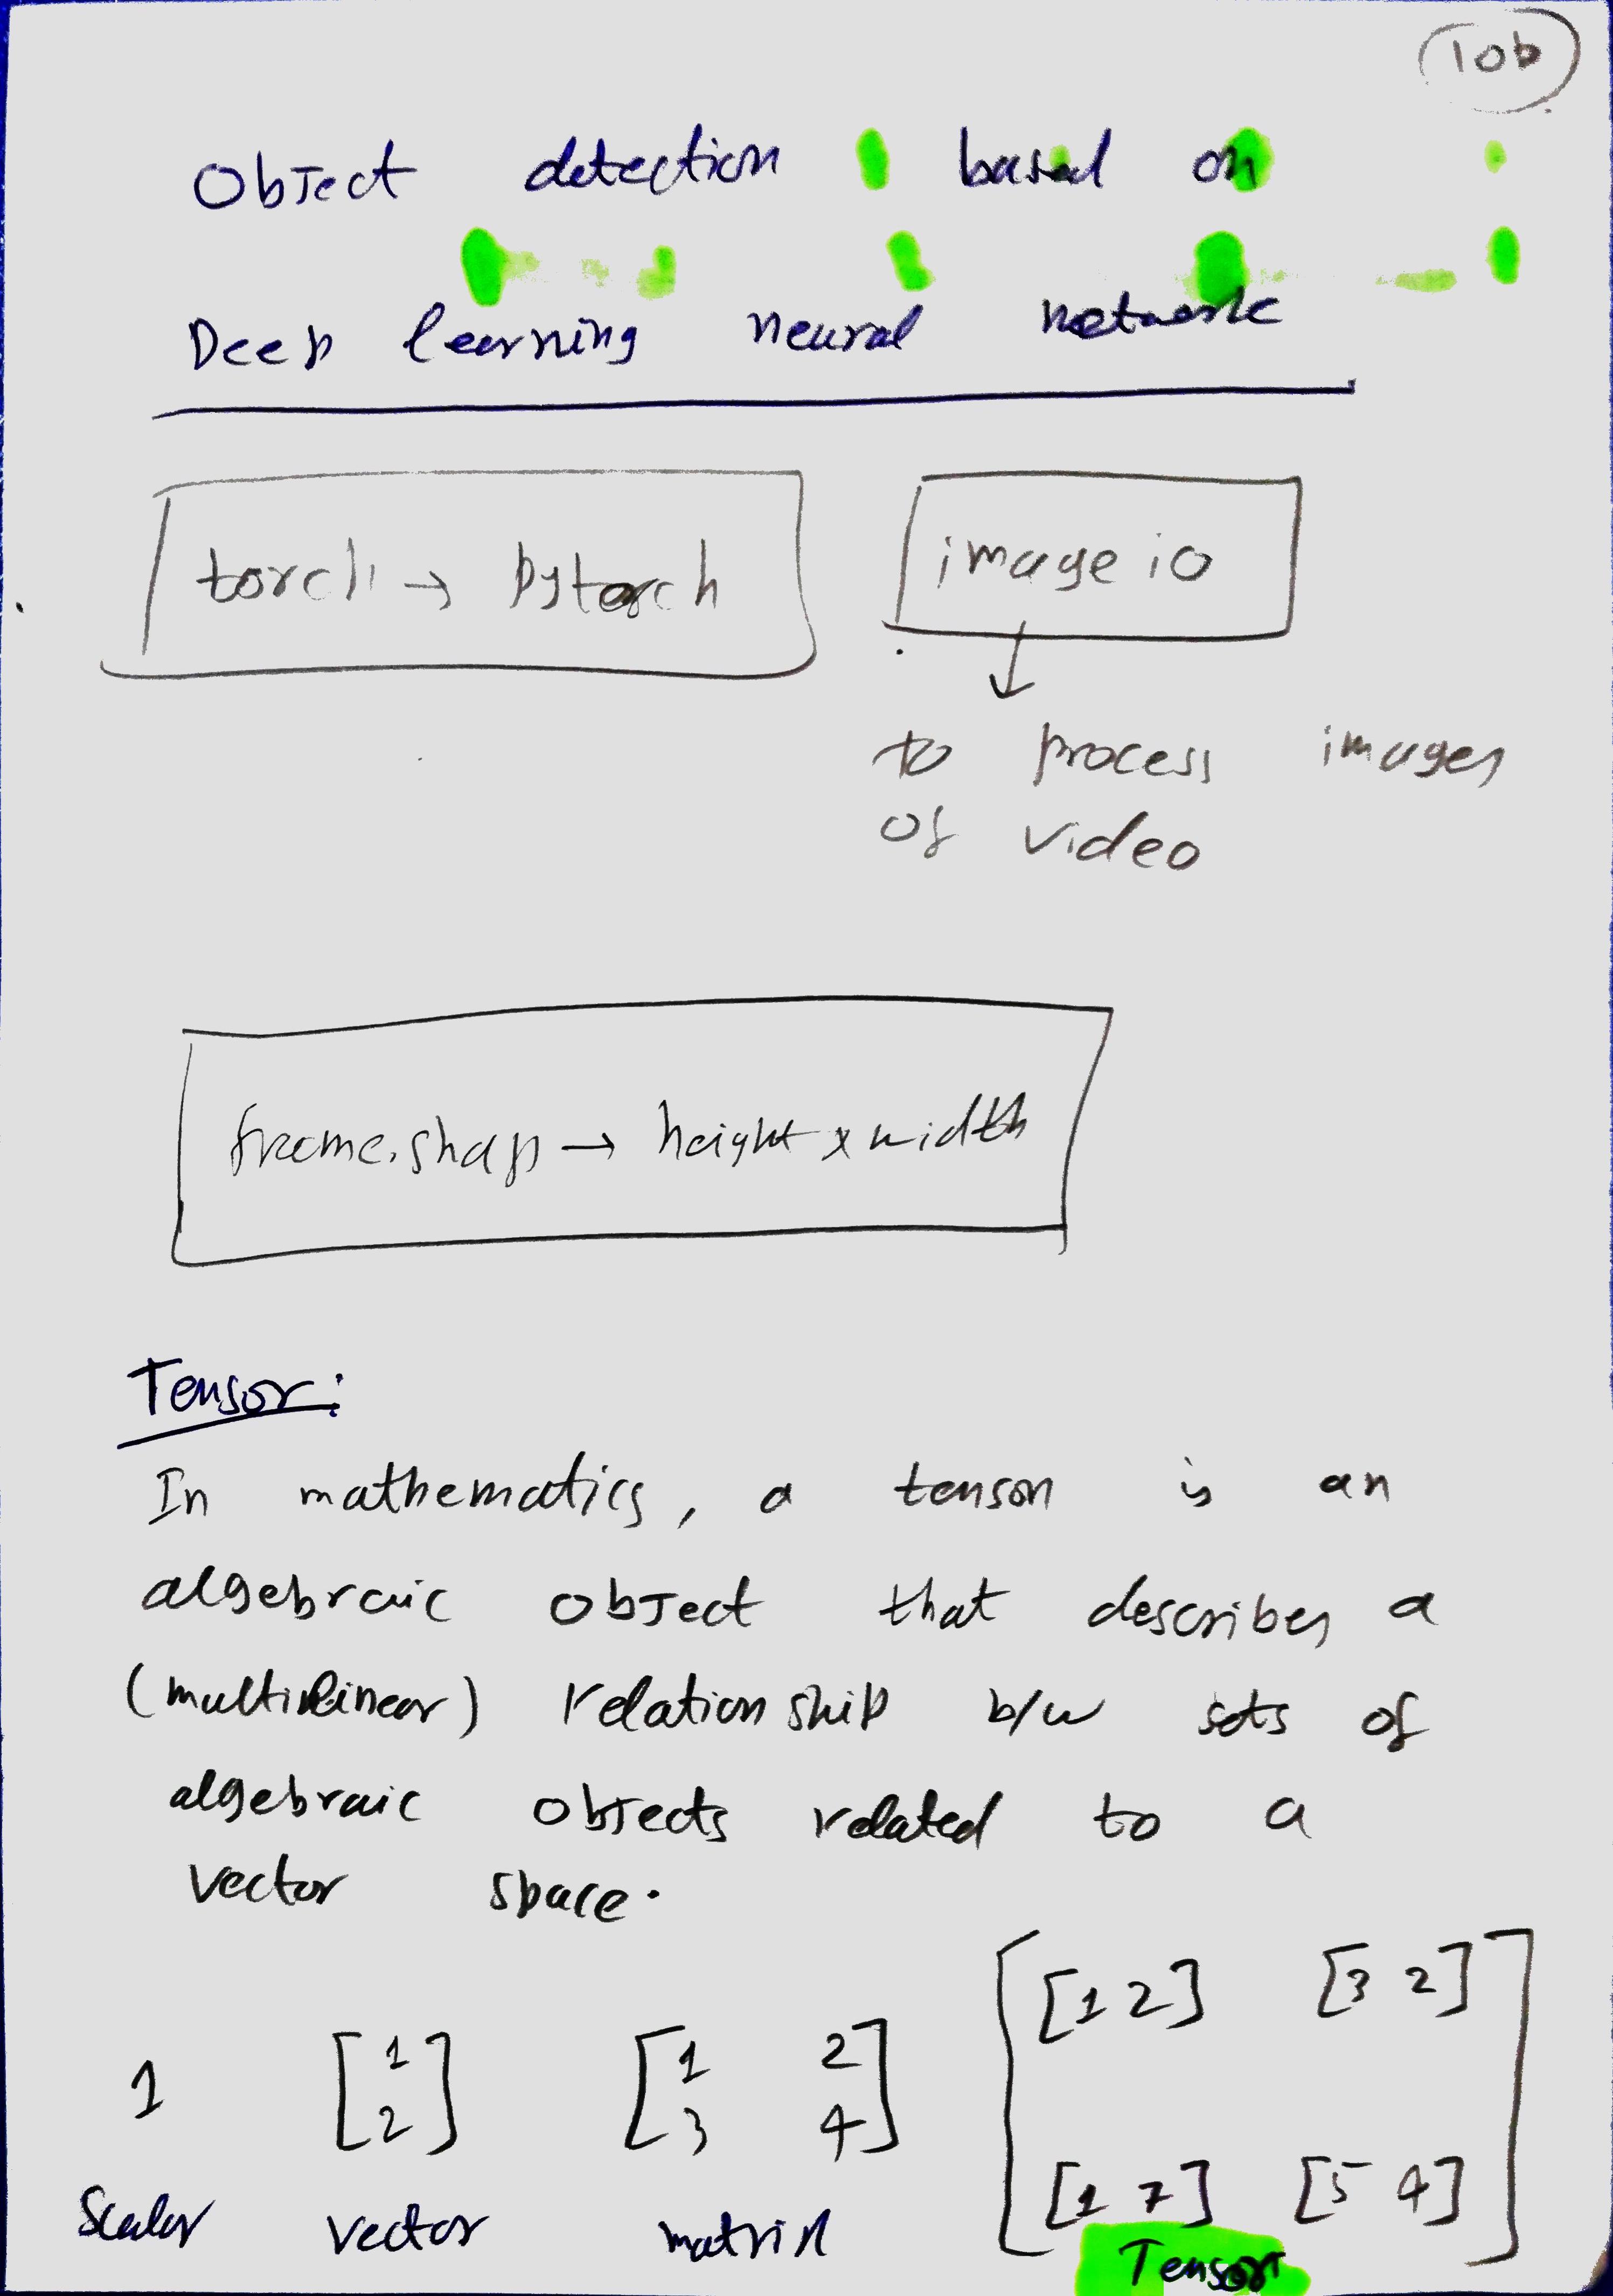 10b
Object detection based on
Deep learning neural network
torch → pytorch
image io
to process images
of video
frame.shap → height x width
Tensor:
In mathematics, a tenson is an
algebraic object that describes a
(multilinear) relationship b/w sets of
algebraic objects related to a
vector space.
1 [1 2] [1 2 3 4] [[1 2] [3 2]
[1 7] [5 4]]
Scalar vector matrix Tensor